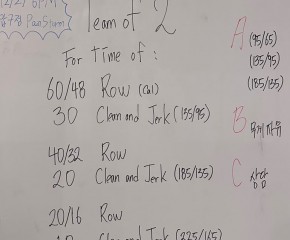 Team of 2
For time of :
60/48 Row (Cal)
30 Clean and Jerk (135/95)
40/32 Row
20 Clean and Jerk (185/135)
20/16 Row
Clean and Jerk (225/165)
A (95/65)
(135/95)
(185/135)
B
C 상담